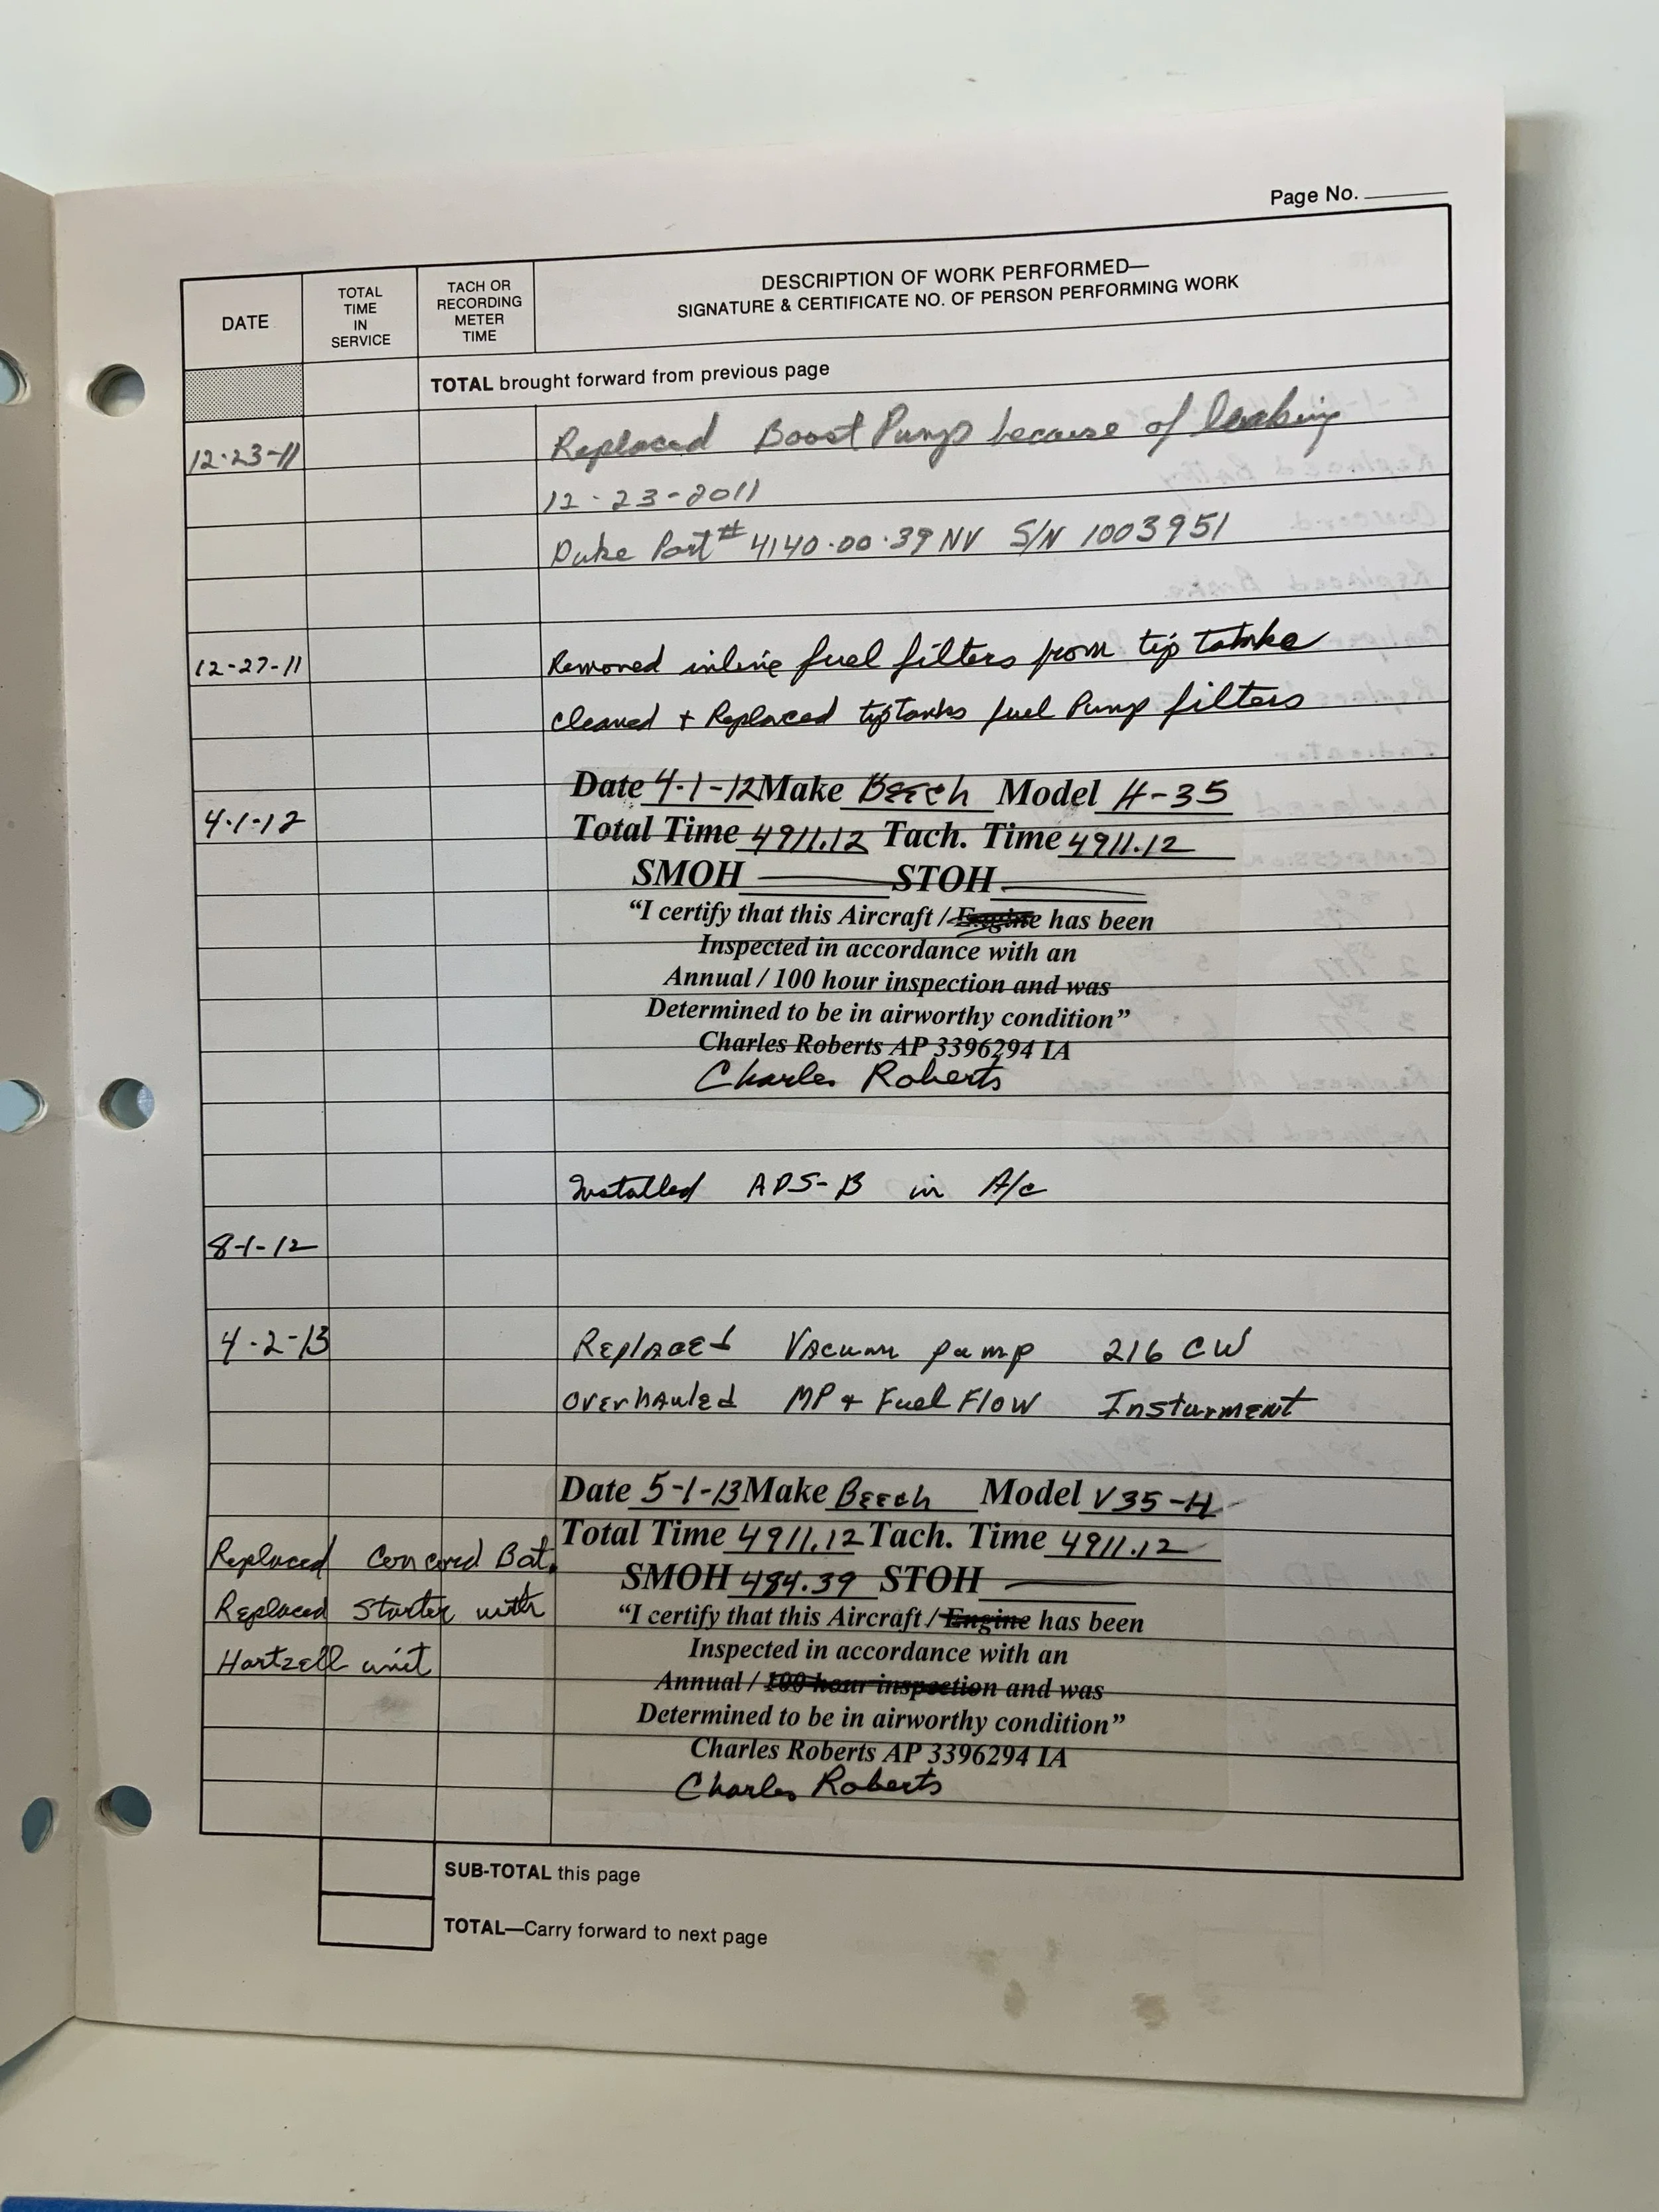 Page No.
DATE
TOTAL TIME IN SERVICE
TACH OR RECORDING METER TIME
DESCRIPTION OF WORK PERFORMED—
SIGNATURE & CERTIFICATE NO. OF PERSON PERFORMING WORK
TOTAL brought forward from previous page
12-23-11 Replaced Boost Pump because of leaking
12-23-2011
Duke Part # 4140-00-39 NV S/N 1003951
12-27-11 Removed inline fuel filters from tip
cleaned + Replaced tiptanks fuel Pump filters
Date 4-1-12 Make Beech Model H-35
4-1-12 Total Time 4911.12 Tach. Time 4911.12
SMOH STOH
“I certify that this Aircraft / Engine has been
Inspected in accordance with an
Annual / 100 hour inspection and was
Determined to be in airworthy condition”
Charles Roberts AP 3396294 IA
Charles Roberts
Installed ADS-B in A/c
8-1-12
4-2-13 Replaced Vacuum pump 216 CW
Overhauled MP + Fuel Flow Insturment
Date 5-1-13 Make Beech Model V35-H
Total Time 4911.12 Tach. Time 4911.12
Replaced Concord Bat.
SMOH 484.39 STOH
Replaced Starter with
“I certify that this Aircraft / Engine has been
Inspected in accordance with an
Hartzell unit
Annual / 100 hour inspection and was
Determined to be in airworthy condition”
Charles Roberts AP 3396294 IA
Charles Roberts
SUB-TOTAL this page
TOTAL—Carry forward to next page